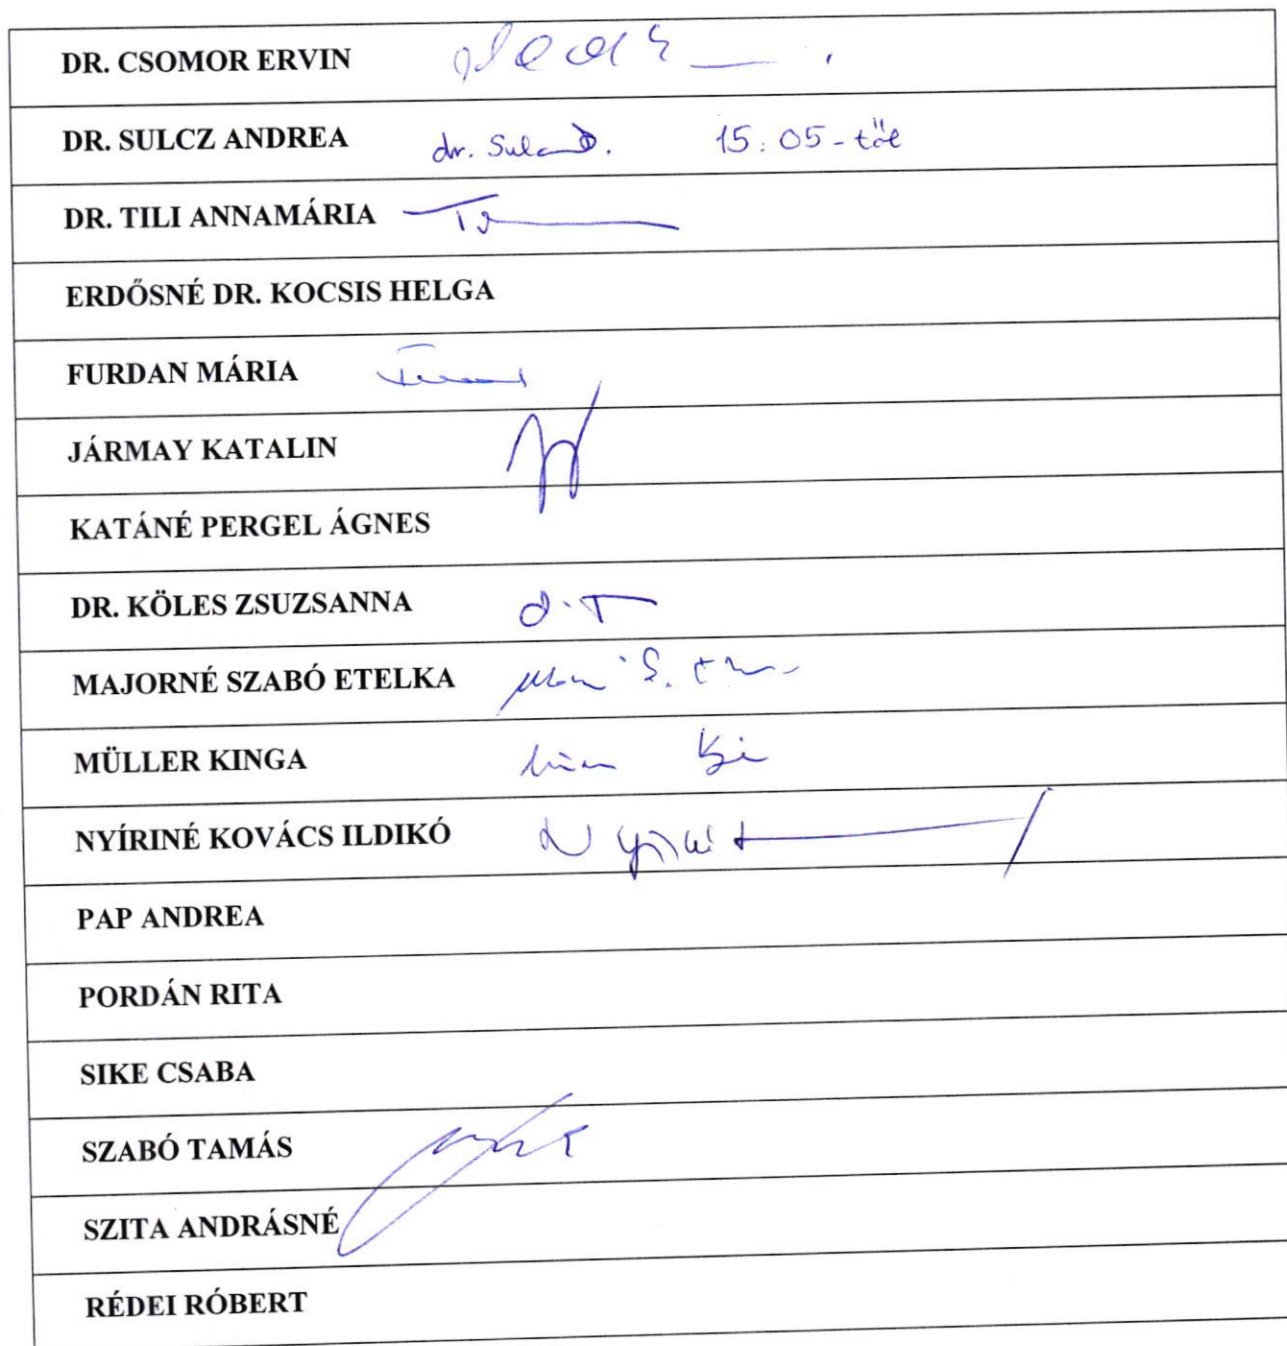 DR. CSOMOR ERVIN
DR. SULCZ ANDREA dr. 15:05-től
DR. TILI ANNAMÁRIA
ERDŐSNÉ DR. KOCSIS HELGA
FURDAN MÁRIA
JÁRMAY KATALIN
KATÁNÉ PERGEL ÁGNES
DR. KÖLES ZSUZSANNA
MAJORNÉ SZABÓ ETELKA
MÜLLER KINGA
NYÍRINÉ KOVÁCS ILDIKÓ
PAP ANDREA
PORDÁN RITA
SIKE CSABA
SZABÓ TAMÁS
SZITA ANDRÁSNÉ
RÉDEI RÓBERT